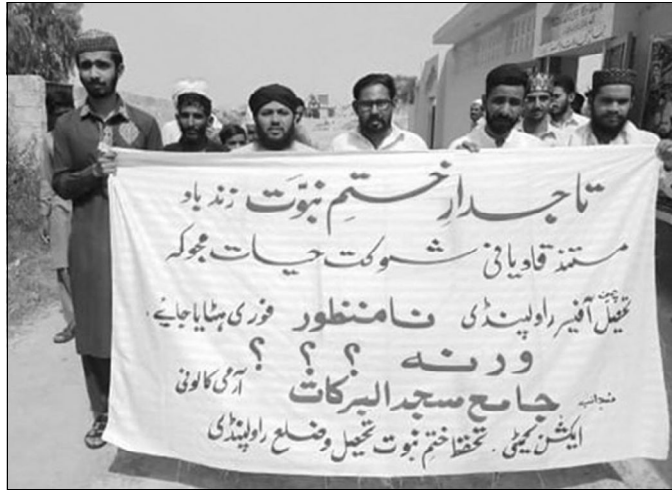 تاجدارِ ختمِ نبوّت زندباو
مستند قادیانی شوکت حیات مجوکہ
چیئر تحصیل آفیسر راولپنڈی نامنظور فوری ہٹایا جائے۔
ورنہ ؟ ؟ ؟
منجانب جامع سجد البرکات آرمی کالونی
ایکشن کمیٹی۔ تحفظ ختم نبوت تحصیل و ضلع راولپنڈی